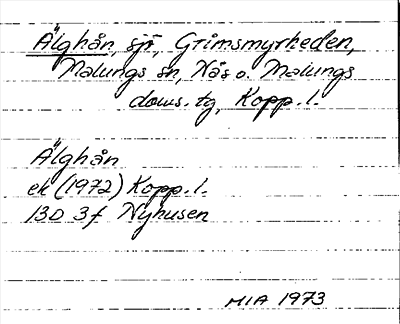 Älghån, sjö, Grimsmyrheden,
Malungs sn, Nås o. Malungs
doms. tg, Kopp. l.
Älghån
ek (1972) Kopp. l.
13D 3f Nyhusen
MIA 1973